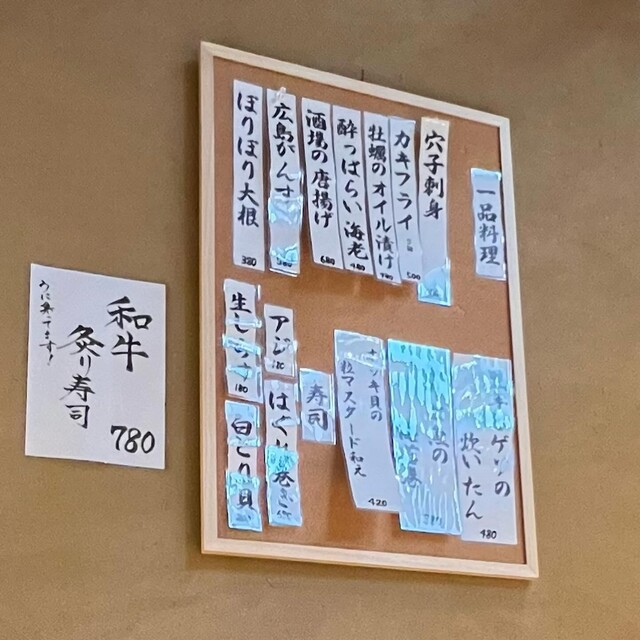 一品料理
穴子刺身
カキフライ 500
牡蠣のオイル漬け 780
酔っぱらい海老 480
酒場の唐揚げ 680
広島がんす
ぽりぽり大根 380
ゲソの
炊いたん 480
の
ホッキ貝の
粒マスタード和え 420
寿司
アジ 180
巻き
生しらす 180
白とり貝
和牛
炙り寿司
うに乗ってます!
780